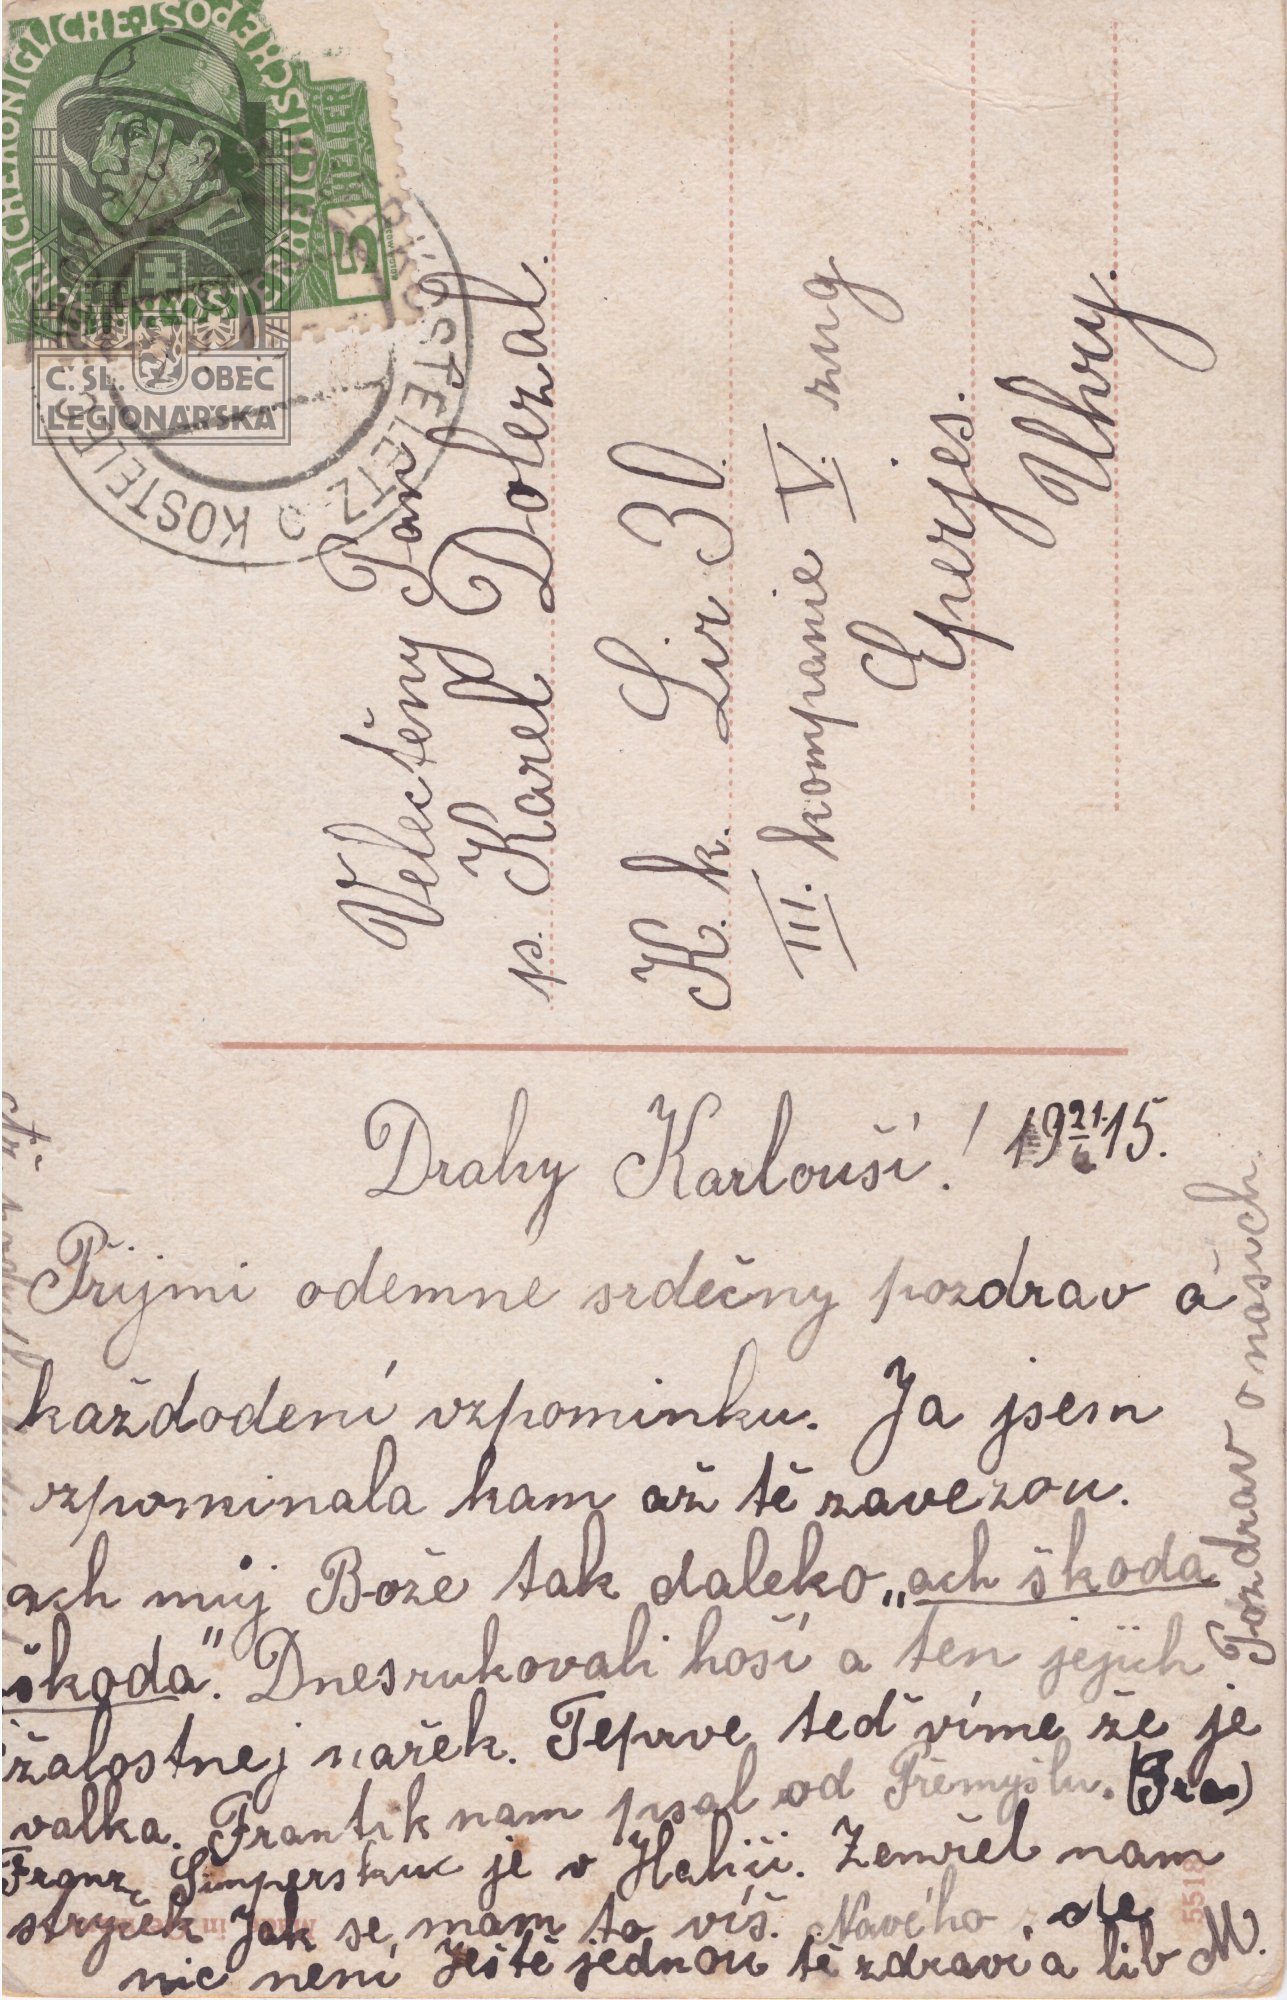 KÖNIGLICHE ÖST
5 HELLER
KOSTELETZ
KOSTELEC
Č. SL. OBEC
LEGIONÁŘSKÁ
Velectěny Pan
p. Karel Doležal.
K. k. Lir 30.
III. kompanie V. zug
Eperjes.
Uhry.
Drahy Karlouši! 19 21. 15.
Přijmi odemne srdečny pozdrav a
každodení vzpominku. Ja jsem
vzpominala kam až tě zavezou.
ach můj Bože tak daleko „ach škoda
škoda". Dnes rukovali hoší a ten jejich
žalostnej nařek. Teprve teď víme že je
valka. Frantik nam psal od Přemyšlu.
Franz je v Haliči. Zemřel nam
stryček Jak se mam to víš. Noveho ale
nic není Ještě jednou tě zdraví a líb M.
Pozdrav o nasich.
5518